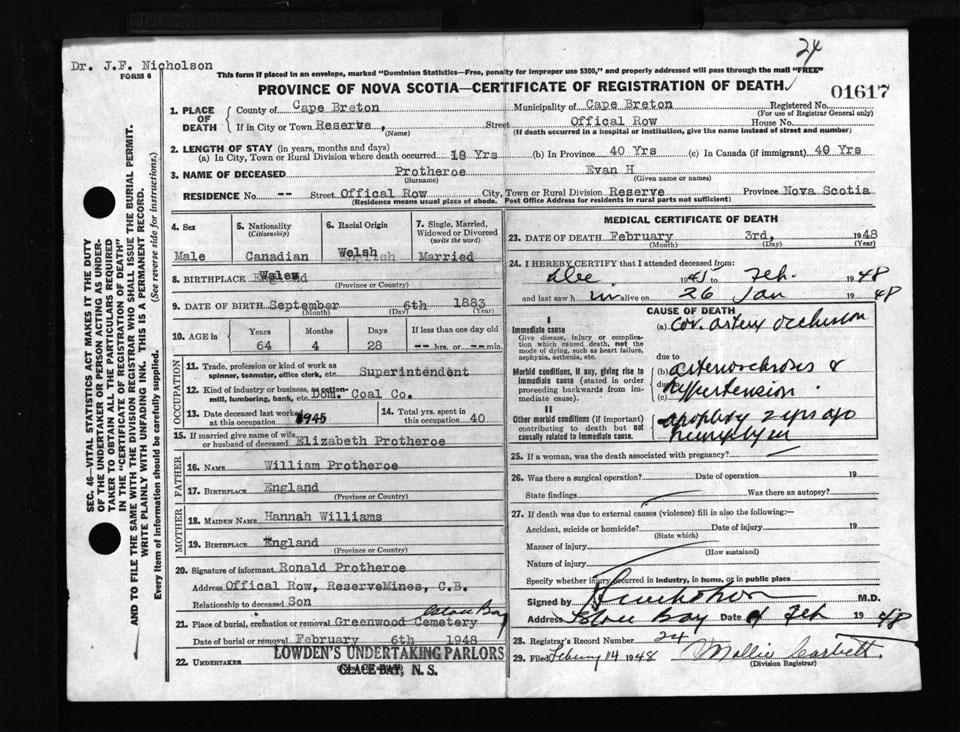 24
Dr. J.F. Nicholson
FORM 6
This form if placed in an envelope, marked "Dominion Statistics—Free, penalty for improper use $300," and properly addressed will pass through the mail "FREE"
PROVINCE OF NOVA SCOTIA—CERTIFICATE OF REGISTRATION OF DEATH
01617
SEC. 46—VITAL STATISTICS ACT MAKES IT THE DUTY
OF THE UNDERTAKER OR PERSON ACTING AS UNDER-
TAKER TO OBTAIN ALL THE PARTICULARS REQUIRED
IN THE "CERTIFICATE OF REGISTRATION OF DEATH"
AND TO FILE THE SAME WITH THE DIVISION REGISTRAR WHO SHALL ISSUE THE BURIAL PERMIT.
WRITE PLAINLY WITH UNFADING INK. THIS IS A PERMANENT RECORD.
Every item of information should be carefully supplied. (See reverse side for instructions.)
1. PLACE OF DEATH County of Cape Breton Municipality of Cape Breton Registered No.
(For use of Registrar General only)
If in City or Town Reserve, Street Offical Row House No.
(Name) (If death occurred in a hospital or institution, give the name instead of street and number)
2. LENGTH OF STAY (in years, months and days)
(a) In City, Town or Rural Division where death occurred 18 Yrs (b) In Province 40 Yrs (c) In Canada (if immigrant) 40 Yrs
3. NAME OF DECEASED Protheroe Evan H
(Surname) (Given name or names)
RESIDENCE No. -- Street Offical Row City, Town or Rural Division Reserve Province Nova Scotia
(Residence means usual place of abode. Post Office Address for residents in rural parts not sufficient)
4. Sex
Male
5. Nationality
(Citizenship)
Canadian
6. Racial Origin
Welsh
7. Single, Married,
Widowed or Divorced
(write the word)
Married
8. BIRTHPLACE Wales
(Province or Country)
9. DATE OF BIRTH September 6th 1883
(Month) (Day) (Year)
10. AGE in
Years Months Days If less than one day old
64 4 28 -- hrs. or -- min.
OCCUPATION
11. Trade, profession or kind of work as
spinner, teamster, office clerk, etc. Superintendent
12. Kind of industry or business, as cotton-
mill, lumbering, bank, etc. Dom. Coal Co.
13. Date deceased last worked
at this occupation 1945
14. Total yrs. spent in
this occupation 40
15. If married give name of wife
or husband of deceased Elizabeth Protheroe
FATHER
16. NAME William Protheroe
17. BIRTHPLACE England
(Province or Country)
MOTHER
18. MAIDEN NAME Hannah Williams
19. BIRTHPLACE England
(Province or Country)
20. Signature of informant Ronald Protheroe
Address Offical Row, ReserveMines, C.B.
Relationship to deceased Son
Glace Bay
21. Place of burial, cremation or removal Greenwood Cemetery
Date of burial or removal February 6th 1948
22. UNDERTAKER LOWDEN'S UNDERTAKING PARLORS
GLACE BAY, N. S.
MEDICAL CERTIFICATE OF DEATH
23. DATE OF DEATH February 3rd, 1948
(Month) (Day) (Year)
24. I HEREBY CERTIFY that I attended deceased from:
Dec. 1945 to Feb. 1948
and last saw h im alive on 26 Jan 1948
CAUSE OF DEATH
I
Immediate cause
Give disease, injury or complica-
tion which caused death, not the
mode of dying, such as heart failure,
asphyxia, asthenia, etc.
(a) Cor. artery occlusion
due to
Morbid conditions, if any, giving rise to
immediate cause (stated in order
proceeding backwards from im-
mediate cause).
(b) arteriosclerosis &
due to
(c) Hypertension
II
Other morbid conditions (if important)
contributing to death but not
causally related to immediate cause.
apoplexy 2 yrs ago
25. If a woman, was the death associated with pregnancy?
26. Was there a surgical operation? Date of operation 19
State findings Was there an autopsy?
27. If death was due to external causes (violence) fill in also the following:—
Accident, suicide or homicide? Date of injury 19
(State which)
Manner of injury
(How sustained)
Nature of injury
Specify whether injury occurred in industry, in home, or in public place
Signed by M.D.
Address Glace Bay Date Feb 1948
28. Registrar's Record Number 24
29. Filed February 14 1948 Mollie Corbett
(Division Registrar)